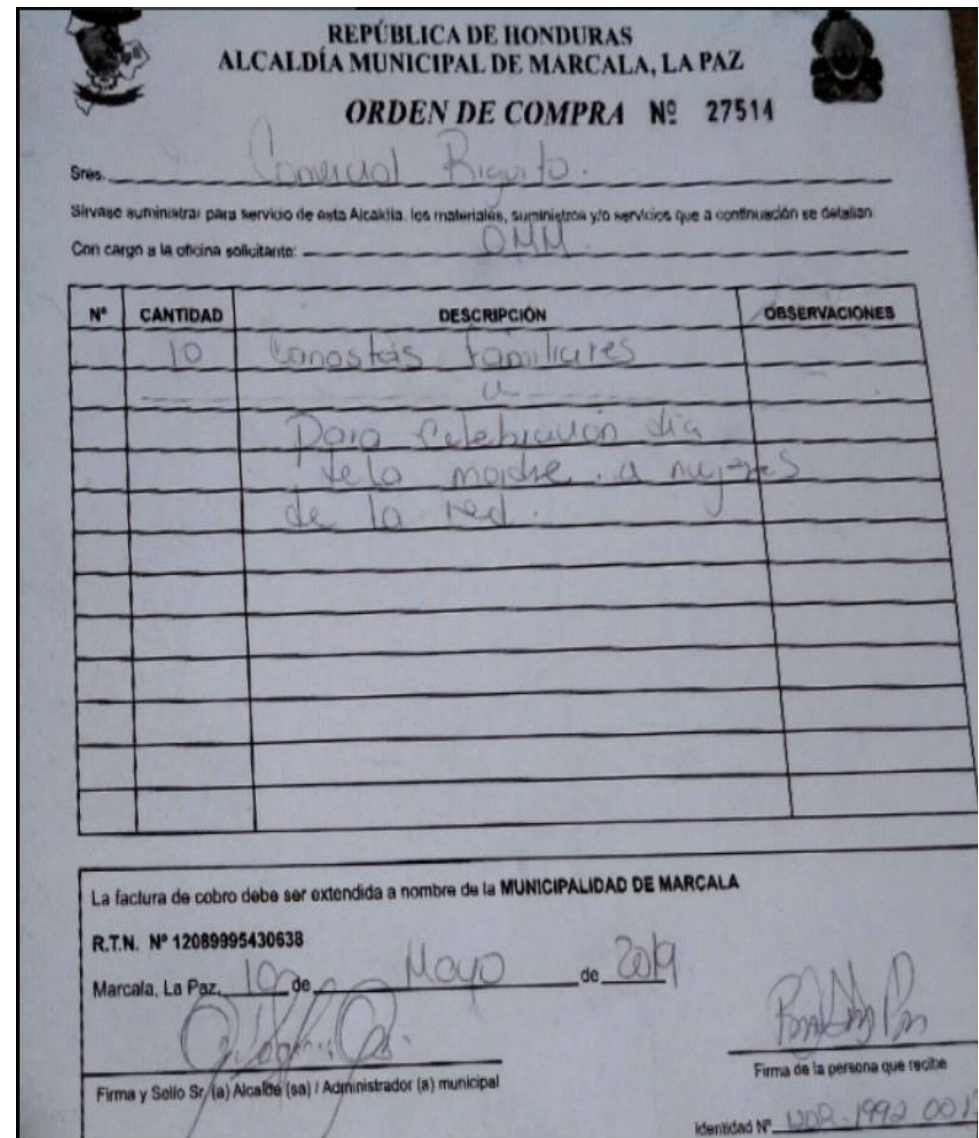 REPÚBLICA DE HONDURAS
ALCALDÍA MUNICIPAL DE MARCALA, LA PAZ
ORDEN DE COMPRA Nº 27514
Sres. Comercial
Sirvase suministrar para servicio de esta Alcaldia, los materiales, suministros y/o servicios que a continuación se detallan:
Con cargo a la oficina solicitante: OMM.
Nº CANTIDAD DESCRIPCIÓN OBSERVACIONES
10 Canastas familiares
Para Celebracion dia
de la madre a mujeres
de la red.
La factura de cobro debe ser extendida a nombre de la MUNICIPALIDAD DE MARCALA
R.T.N. Nº 12089995430638
Marcala, La Paz, 10 de Mayo de 2019
Firma y Sello Sr. (a) Alcalde (sa) / Administrador (a) municipal
Firma de la persona que recibe
Identidad Nº